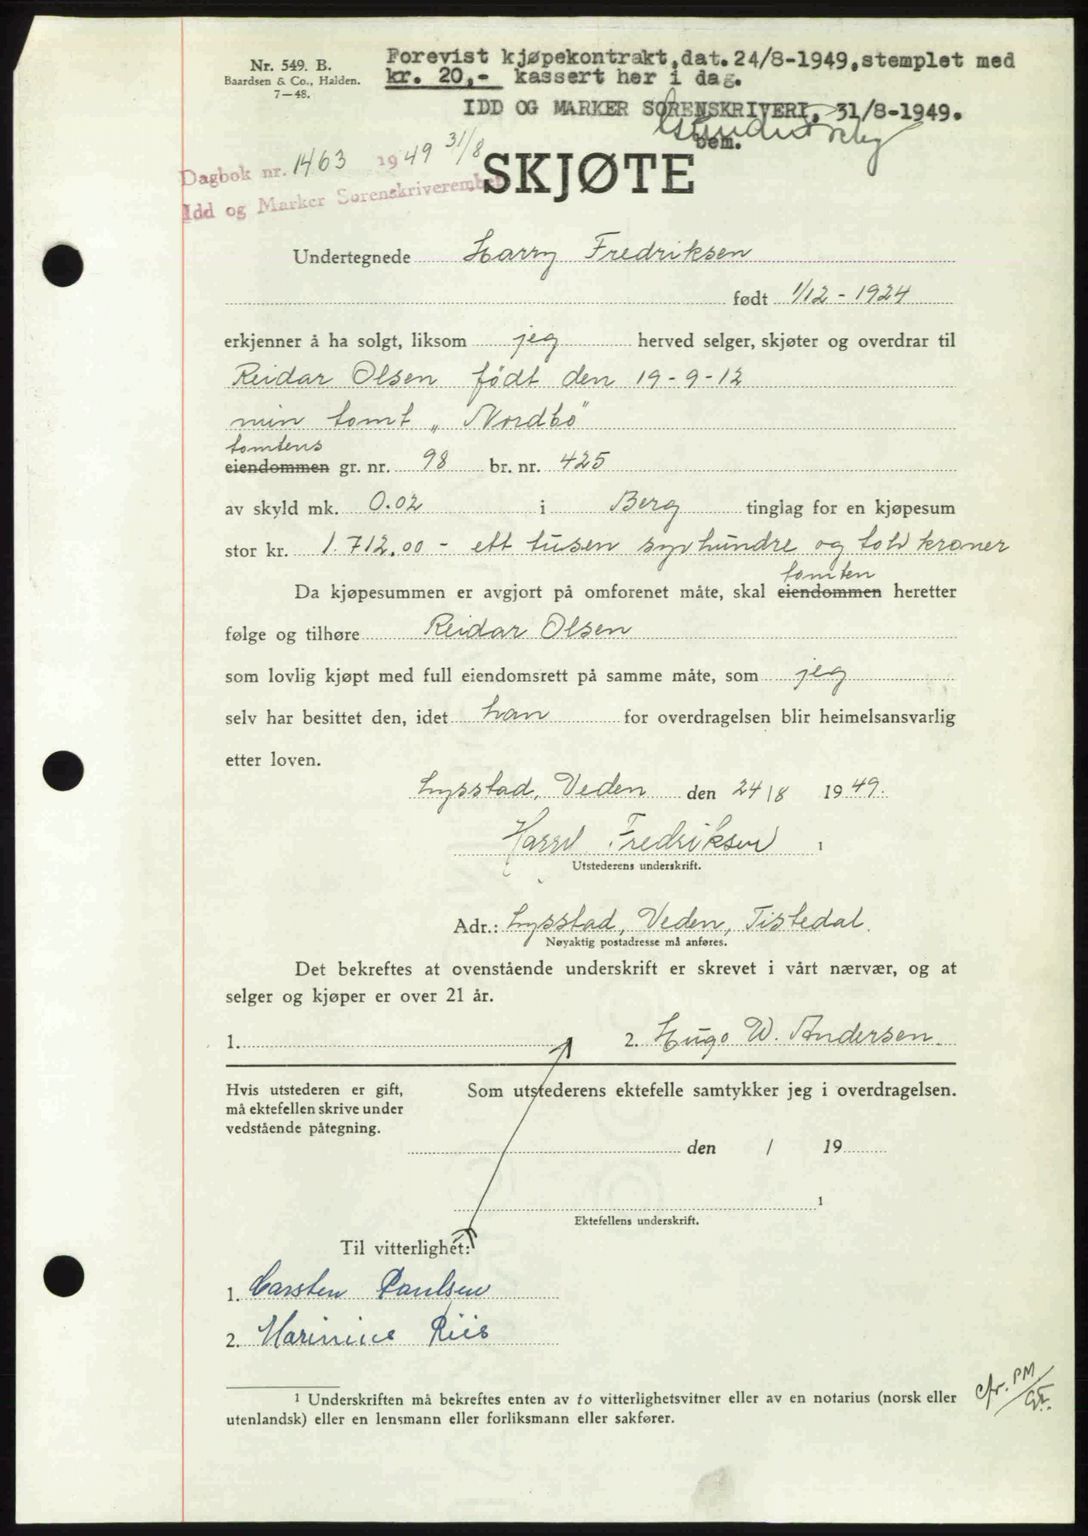 Nr. 549. B.
Baardsen & Co., Halden.
7—48.
Forevist kjøpekontrakt, dat. 24/8-1949, stemplet med
kr. 20,- kassert her i dag.
IDD OG MARKER SORENSKRIVERI, 31/8-1949.
bem.
Dagbok nr. 1463 1949 31/8
Idd og Marker Sorenskriverembet
SKJØTE
Undertegnede Harry Fredriksen
født 1/12 - 1924
erkjenner å ha solgt, liksom jeg herved selger, skjøter og overdrar til
Reidar Olsen født den 19-9-12
min tomt „Nordbo"
tomtens
eiendommen gr. nr. 98 br. nr. 425
av skyld mk. 0.02 i Berg tinglag for en kjøpesum
stor kr. 1.712.00 - ett tusen syvhundre og tolv kroner
tomten
Da kjøpesummen er avgjort på omforenet måte, skal eiendommen heretter
følge og tilhøre Reidar Olsen
som lovlig kjøpt med full eiendomsrett på samme måte, som jeg
selv har besittet den, idet han for overdragelsen blir heimelsansvarlig
etter loven.
Lysstad, Veden den 24/8 1949.
Harry Fredriksen 1
Utstederens underskrift.
Adr.: Lysstad, Veden, Tistedal.
Nøyaktig postadresse må anføres.
Det bekreftes at ovenstående underskrift er skrevet i vårt nærvær, og at
selger og kjøper er over 21 år.
1. 2. Hugo W. Andersen.
Hvis utstederen er gift,
må ektefellen skrive under
vedstående påtegning.
Som utstederens ektefelle samtykker jeg i overdragelsen.
den / 19
1
Ektefellens underskrift.
Til vitterlighet:
1. Carsten Paulsen
2. Marinius Riis
1 Underskriften må bekreftes enten av to vitterlighetsvitner eller av en notarius (norsk eller
utenlandsk) eller en lensmann eller forliksmann eller sakfører.
cfr. PM